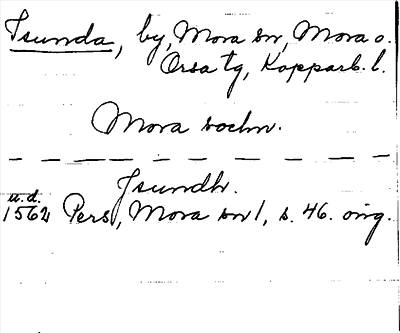 Isunda, by, Mora sn, Mora o.
Orsa tg, Kopparb. l.
Mora socken.
Isundh.
u.d.
1562 Pers, Mora sn 1, s. 46. orig.